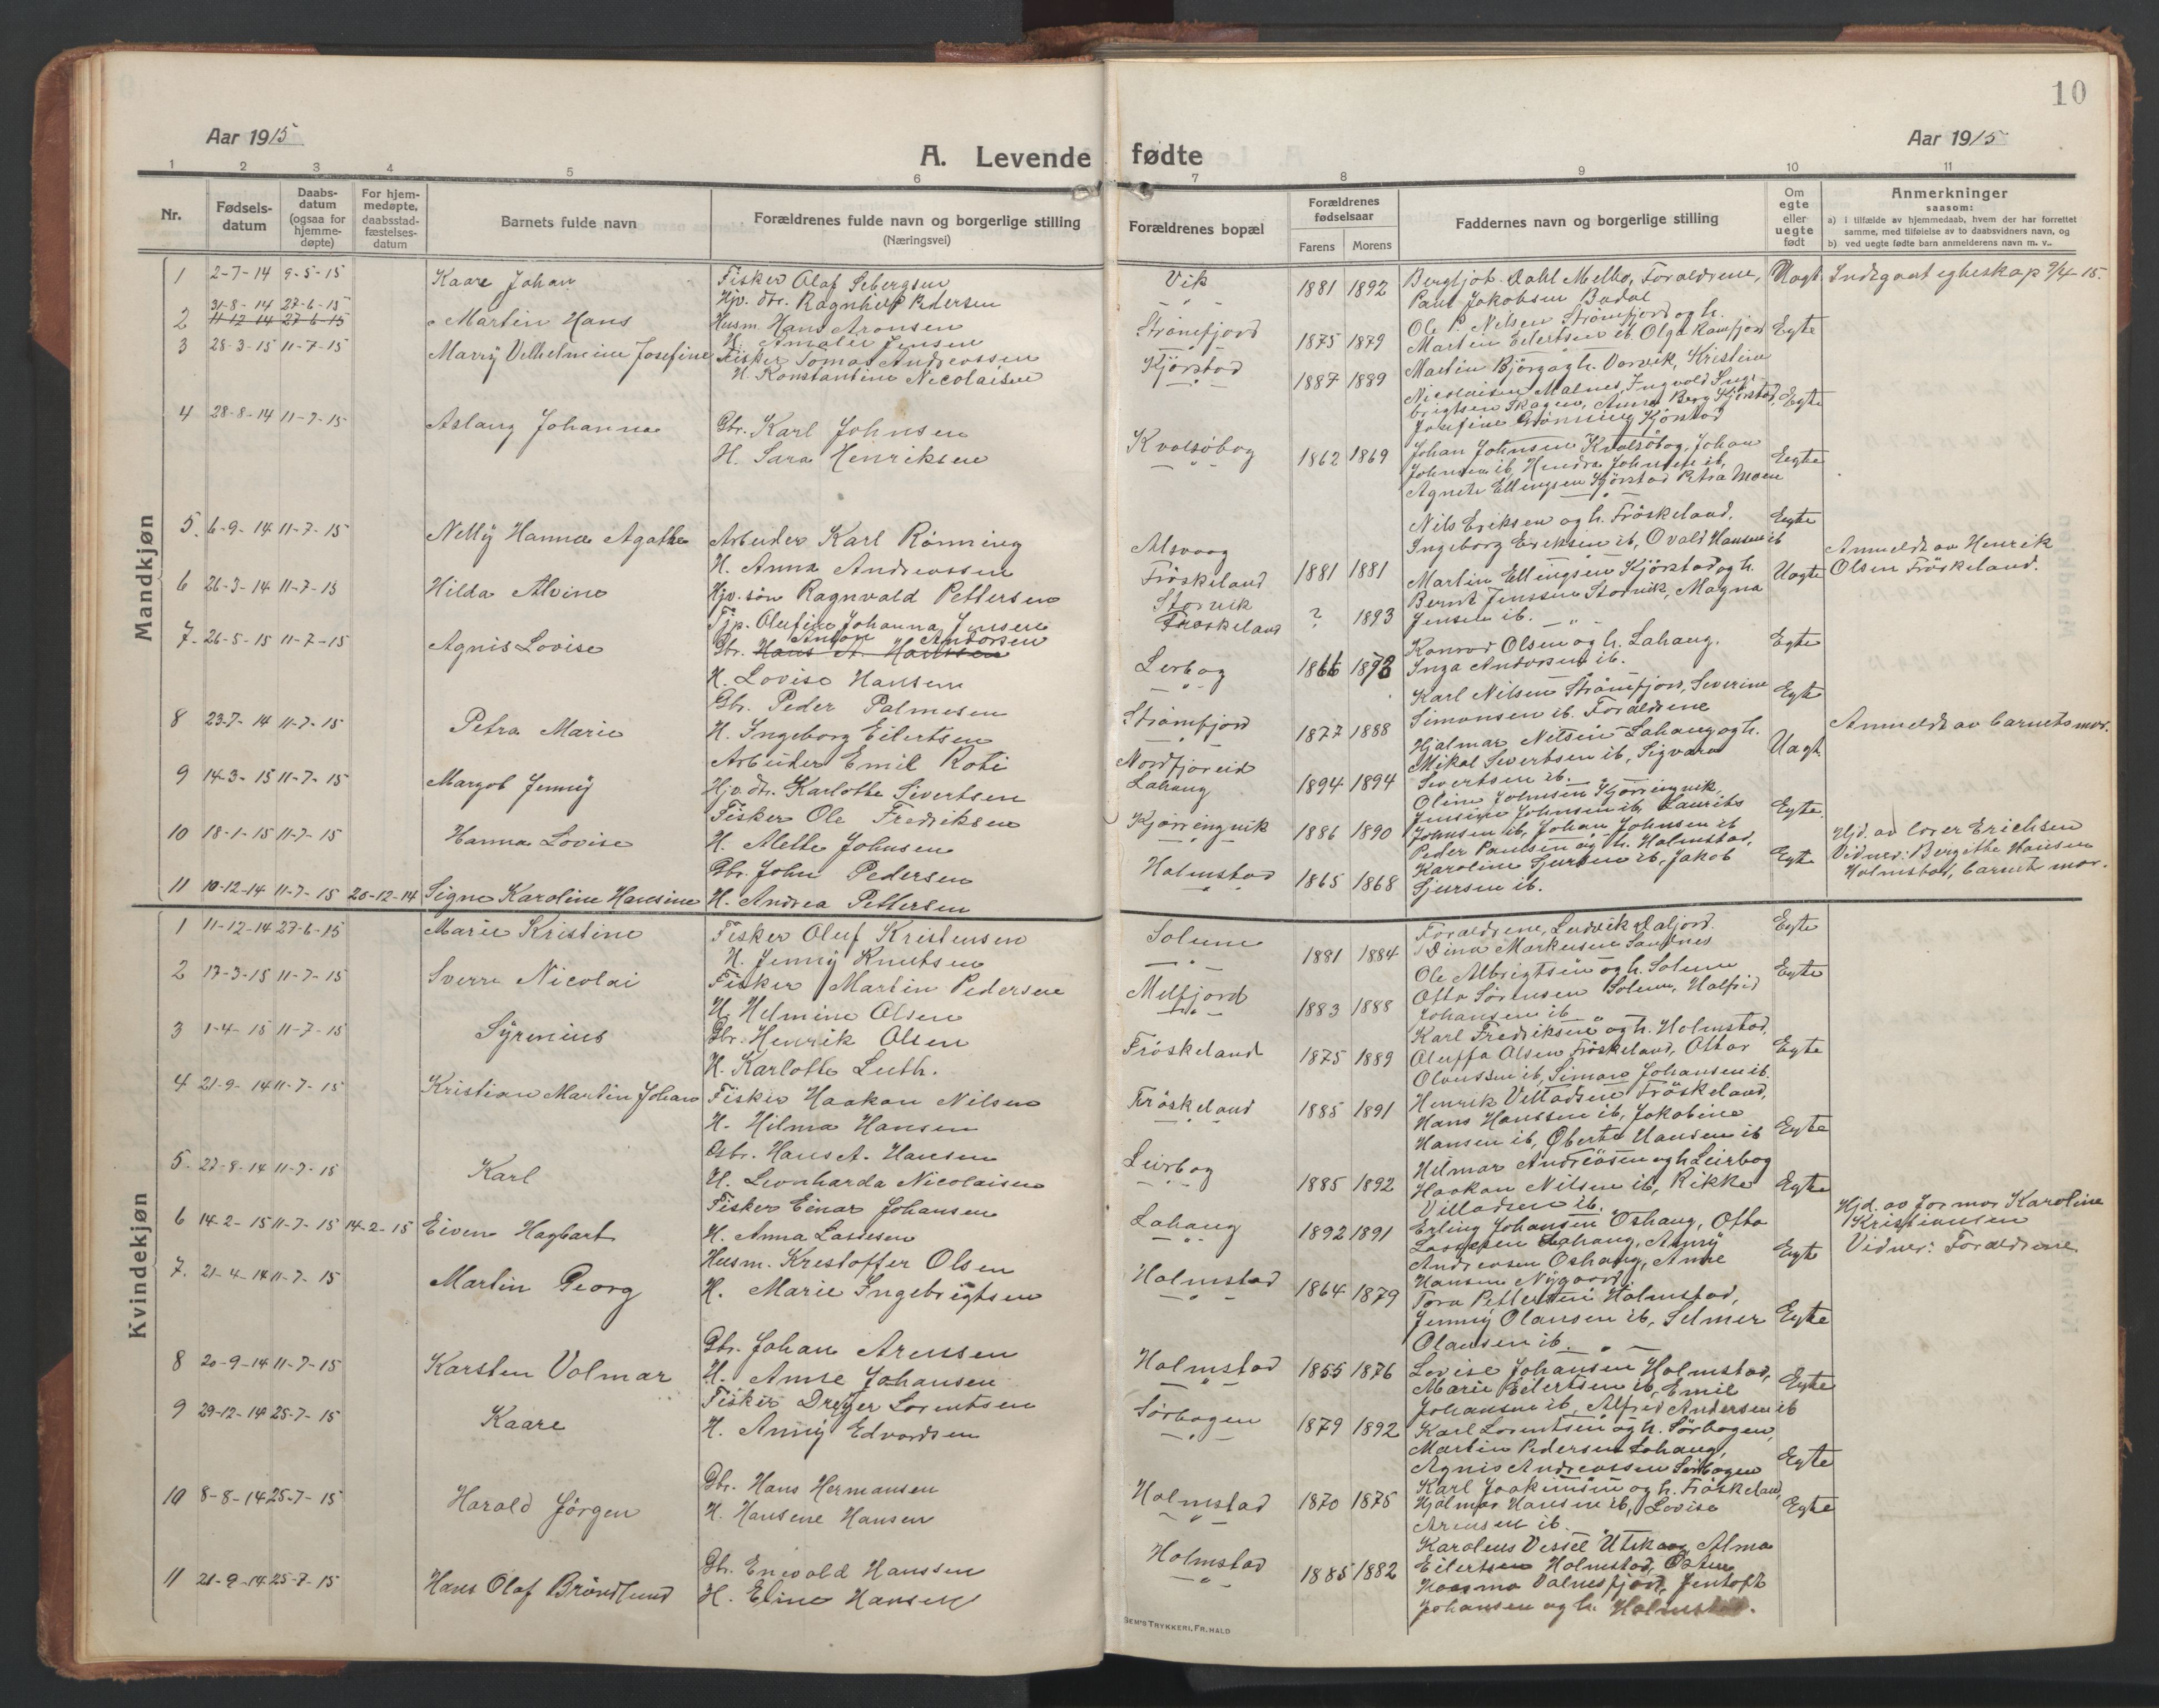 10
Aar 1915
Aar 1915
A. Levende fødte
1 2 3 4 5 6 7 8 9 10 11
Nr.
Fødsels-
datum
Daabs-
datum
(ogsaa for
hjemme-
døpte)
For hjem-
medøpte,
daabsstad-
fæstelses-
datum
Barnets fulde navn
Forældrenes fulde navn og borgerlige stilling
(Næringsvei)
Forældrenes bopæl
Forældrenes
fødselsaar
Farens Morens
Faddernes navn og borgerlige stilling
Om
egte
eller
uegte
født
Anmerkninger
saasom:
a) i tilfælde av hjemmedaab, hvem der har forrettet
samme, med tilføielse av to daabsvidners navn, og
b) ved uegte fødte barn anmelderens navn m. v..
Mandkjøn
1 2-7-14 9-5-15 Kaare Johan Fisker Olaf Sebergsen Vik 1881 1892 Bergljot Dahl Melbo, Forældrene, Uegt. Indgaat egteskap 9/4 15.
Hjv. dtr. Ragnhild Pedersen Paul Jakobsen Badal
31-8-14 27-6-15
2 11-12-14 27-6-15 Martin Hans Husm. Hans Aronsen Strømfjord 1875 1879 Ole P. Nilsen Strømfjord og h. Egte
H. Amalie Jensen Martin Eilertsen ib. Olga Ramfjord
3 28-3-15 11-7-15 Marry Vilhelmine Josefine Fisker Tomas Andreassen Kjørstad 1887 1889 Martin Bjørgo og h. Vorvik, Kristine
H. Konstantine Nicolaisen Nicolaisen Malnes, Ingvald Inge-
brigtsen Skagen, Anna Berg Kjørstad, Egte
Josefine Grønning Kjørstad
4 28-8-14 11-7-15 Aslaug Johanna Gbr. Karl Johnsen Kvalsøbog 1862 1869 Johan Johnsen Kvalsøbog, Johan
H. Sara Henriksen Johnsen ib, Hendra Johnsen ib, Egte
Agnete Ellingsen Kjørstad Petra Moen
5. 6-9-14 11-7-15 Nelly Hanna Agathe Arbeider Karl Rønning Alsvaag 1881 1881 Nils Eriksen og h. Frøskeland. Egte
H. Anna Andreassen Frøskeland Ingeborg Eriksen ib, Ovald Hansen ib
6 26-3-14 11-7-15 Hilda Alvine Hjv. søn Ragnvald Pettersen Storvik ? 1893 Martin Ellingsen Kjørstad og h. Uegte Anmeldt av Henrik
Tjp. Olufine Johanna Jensen Frøskeland Bernt Jenssen Storvik, Magna Olsen Frøskeland.
Jensen ib.
7. 26-5-15 11-7-15 Agnis Lovise Gbr. Hans A. Hanssen Anton Andorsen Lerbog 1866 1873 Konrad Olsen og h. Lahaug. Egte
H. Lovise Hansen Inga Andorsen ib.
8 23-7-14 11-7-15 Petra Marie Gbr. Peder Palmesen Strømfjord 1877 1888 Karl Nilsen Strømfjord, Severine Egte
H. Ingeborg Eilertsen Simonsen ib. Forældrene
9 14-3-15 11-7-15 Margot Jenny Arbeider Emil Roti Nordfjoreid 1894 1894 Hjalmar Nilsen Lahaug og h. Uegt. Anmeldt av barnets mor.
Hjv. dtr. Karlotte Sivertsen Lahaug Mikal Sivertsen ib, Sigvard
Sivertsen ib.
10 18-1-15 11-7-15 Hanna Lovise Fisker Ole Fredriksen Kjørringvik 1886 1890 Oline Johnsen Kjørringvik, Egte.
H. Mette Johnsen Jensine Johnsen ib, Laurits
Johnsen ib, Johan Johnsen ib
11 10-12-14 11-7-15 20-12-14 Signe Karoline Hansine Gbr. John Pedersen Holmstad 1865 1868 Peder Paulsen og h. Holmstad, Egte Hjd. av lærer Erichsen
H. Andrea Pettersen Karoline Sjursen ib, Jakob Vidner: Bergithe Hansen
Sjursen ib. Holmstad, barnets mor.
Kvindekjøn
1 11-12-14 27-6-15 Marie Kristine Fisker Oluf Kristensen Solum 1881 1884 Forældrene, Ludvik Daljord. Egte
H. Jenny Knutsen Dina Markusen Sandnes
2 17-3-15 11-7-15 Sverre Nicolai Fisker Martin Pedersen Melfjord 1883 1888 Ole Albrigtsen og h. Solum Egte
H. Helmine Olsen Otto Sørensen Solum, Halfrid
Johansen ib
3 1-4-15 11-7-15 Syrenius Gbr. Henrik Olsen Frøskeland 1875 1889 Karl Fredriksen og h. Holmstad, Egte
H. Karlotte Luth. Oluffa Olsen Frøskeland, Ottar
Olaussen ib, Simon Johansen ib.
4 21-9-14 11-7-15 Kristian Martin Johan Fisker Haakon Nilsen Frøskeland 1885 1891 Henrik Villadsen Frøskeland,
H. Hilma Hansen Hans Hanssen ib, Jakobine
Hansen ib, Oberta Hansen ib Egte
5. 27-8-14 11-7-15 Karl Gbr. Hans A. Hansen Leirbog 1885 1892 Hilmar Andreasen og h. Leirbog
H. Leonharda Nicolaisen Haakon Nilsen ib, Rikke Egte
Villadsen ib.
6 14-2-15 11-7-15 14-2-15 Eivin Hagbart Fisker Einar Johansen Lahaug 1892 1891 Erling Johansen Oshaug, Otto Hjd. av farmor Karoline
H. Anna Lassesen Lassesen Lahaug, Anny Kristiansen
Andreasen Oshaug, Anne Egte Vidner: Forældrene
Hansen Nygaard.
7. 21-4-14 11-7-15 Martin Georg Husm. Krestoffer Olsen Holmstad 1864 1879 Tora Pettersen Holmstad,
H. Marie Ingebrigtsen Jenny Olausen ib, Selmer Egte
Olausen ib.
8 20-9-14 11-7-15 Karsten Volmar Gbr. Johan Arensen Holmstad 1855 1876 Lovise Johansen Holmstad,
H. Anne Johansen Marie Eilertsen ib, Emil Egte
Johansen ib, Alfred Andersen ib
9 29-12-14 25-7-15 Kaare Fisker Dreyer Lorentsen Sørbogen 1879 1892 Karl Lorentsen og h. Sørbogen,
H. Anny Edvardsen Martin Pedersen Lahaug,
Agnis Andreassen Sørbogen Egte
10 8-8-14 25-7-15 Harald Jørgen Gbr. Hans Hermansen Holmstad 1870 1875 Karl Joakimsen og h. Frøskeland,
H. Hansene Hansen Hjalmar Hansen ib, Lovise Egte
Arensen ib.
11 21-9-14 25-7-15 Hans Olaf Brøndlund Gbr. Enevold Hanssen Holmstad 1885 1882 Karolius Vessel Utskor, Alma
H. Eline Hansen Eilertsen Holmstad,
Valnesfjord, Jentoft
Johansen og h. Holmstad.
SEM'S TRYKKERI, FR. HALD